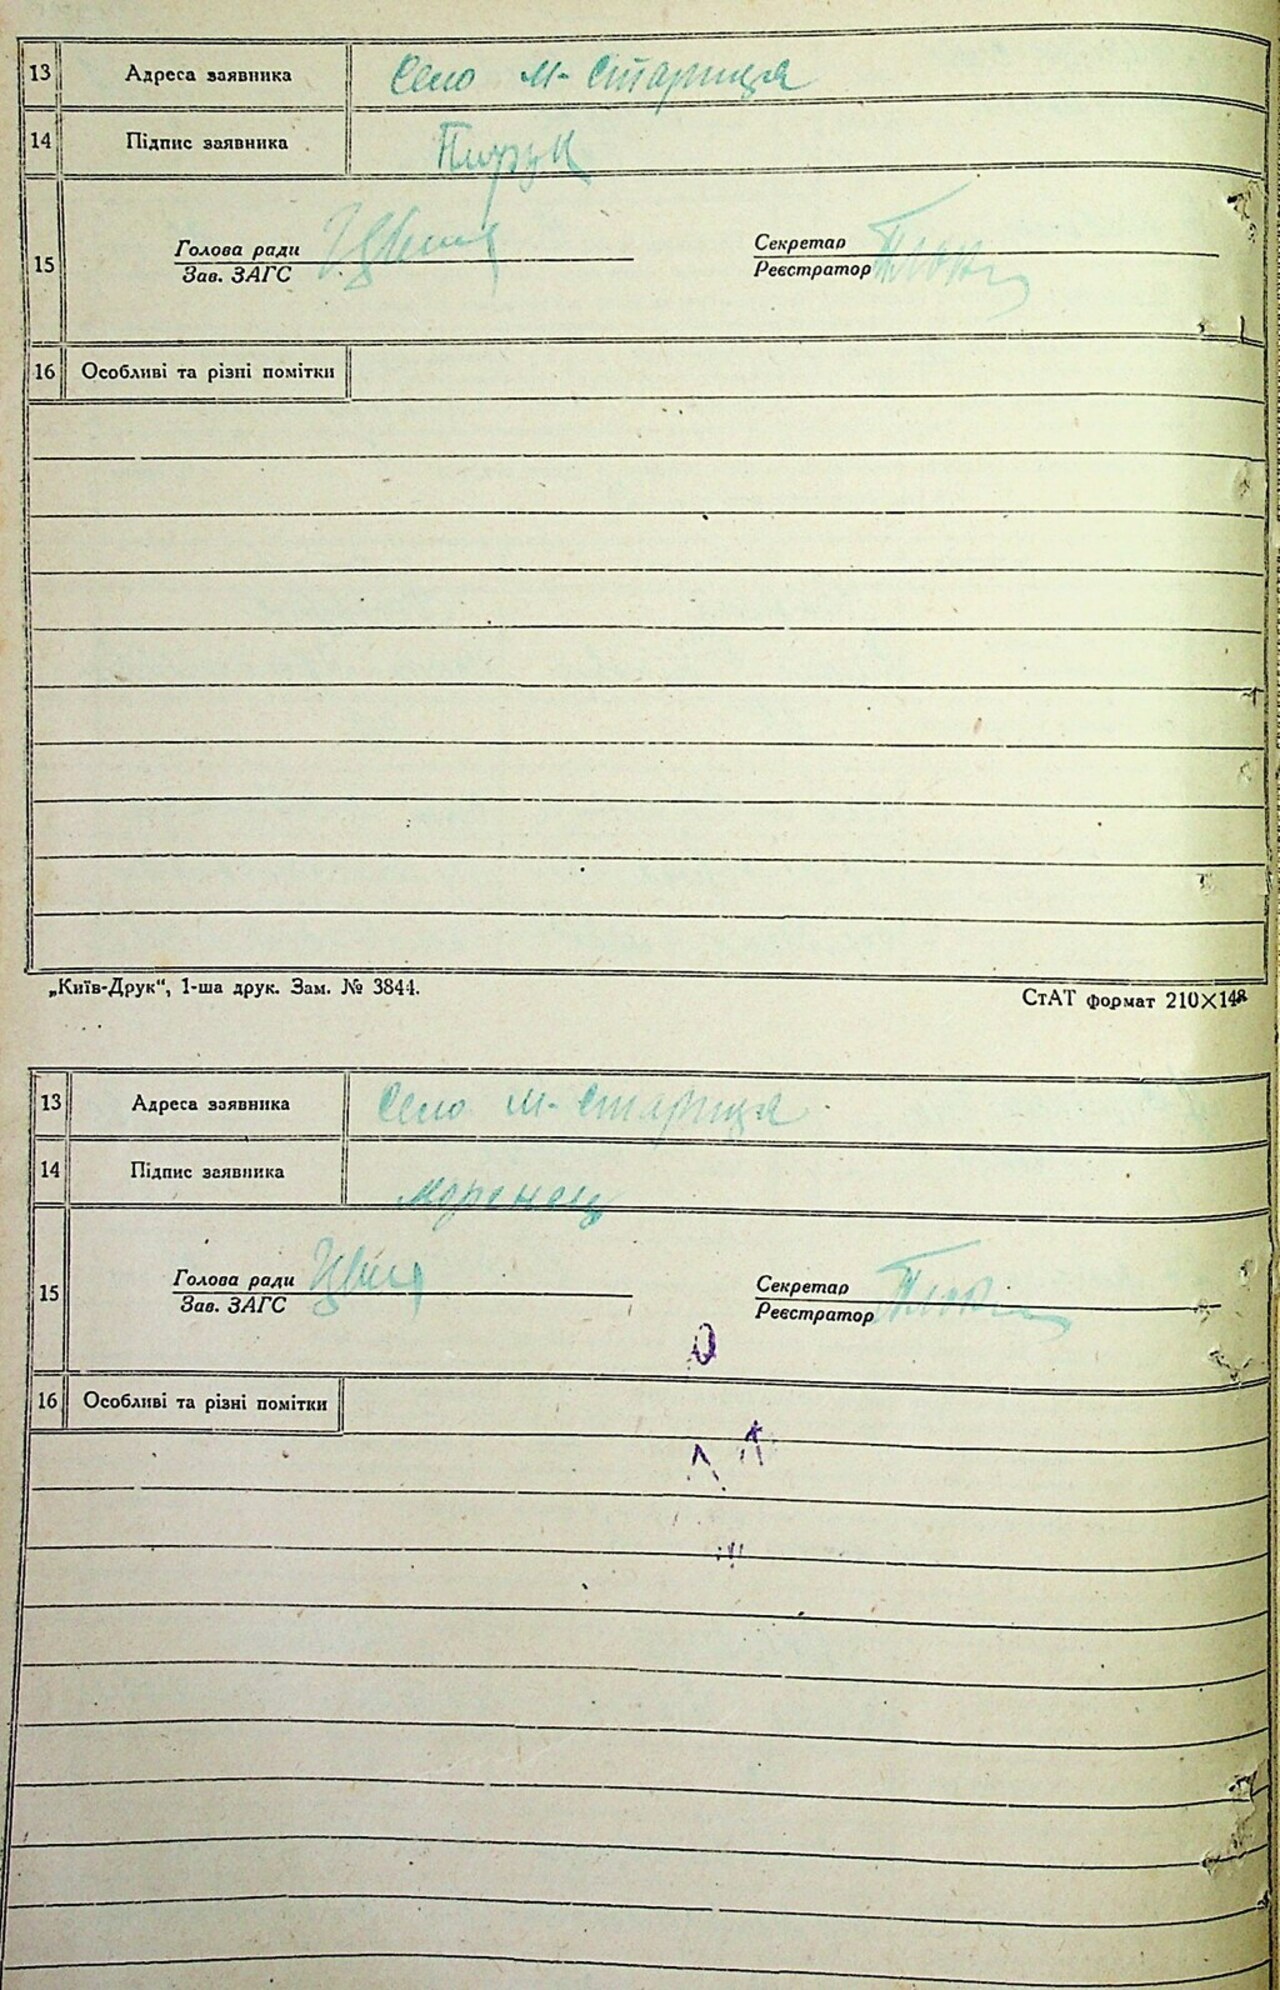 13 Адреса заявника Село М-Стариця
14 Підпис заявника
15 Голова ради Секретар
Зав. ЗАГС Реєстратор
16 Особливі та різні помітки
„Київ-Друк“, 1-ша друк. Зам. № 3844. СтАТ формат 210×148
13 Адреса заявника Село М-Стариця
14 Підпис заявника Моренец
15 Голова ради Секретар
Зав. ЗАГС Реєстратор
16 Особливі та різні помітки